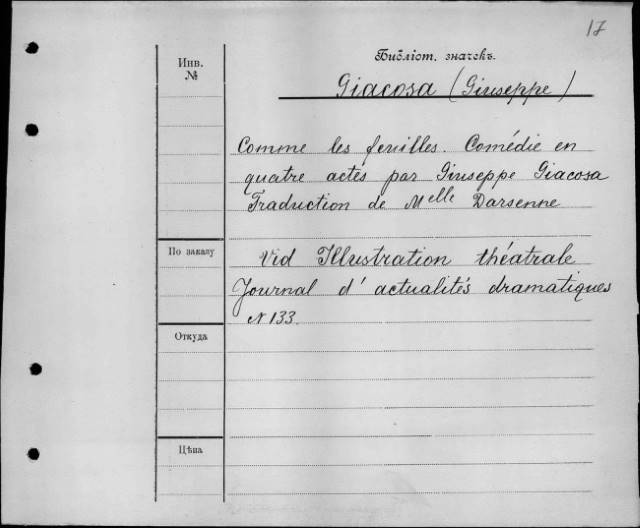 17
Библіот. значекъ.
Инв.
№
Giacosa (Giuseppe)
Comme les feuilles. Comédie en
quatre actes par Giuseppe Giacosa
Traduction de Melle Darsenne
По заказу
Vid Illustration théatrale
Journal d'actualités dramatiques
N 133.
Откуда
Цѣна